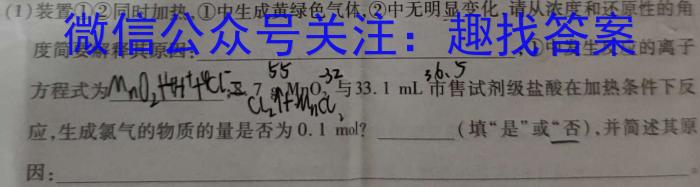 (1)装置①②同时加热,①中生成黄绿色气体,②中无明显变化,请从浓度和还原性的角
度简要解释其原因:
微信公众号关注:趣找答案
,①中发生反应的离子
55 32 36.5
方程式为 MnO2+ ;8.7 g MnO2与33.1 mL市售试剂级盐酸在加热条件下反
Cl2↑+MnCl2
应,生成氯气的物质的量是否为0.1 mol? (填“是”或“否),并简述其原
因: